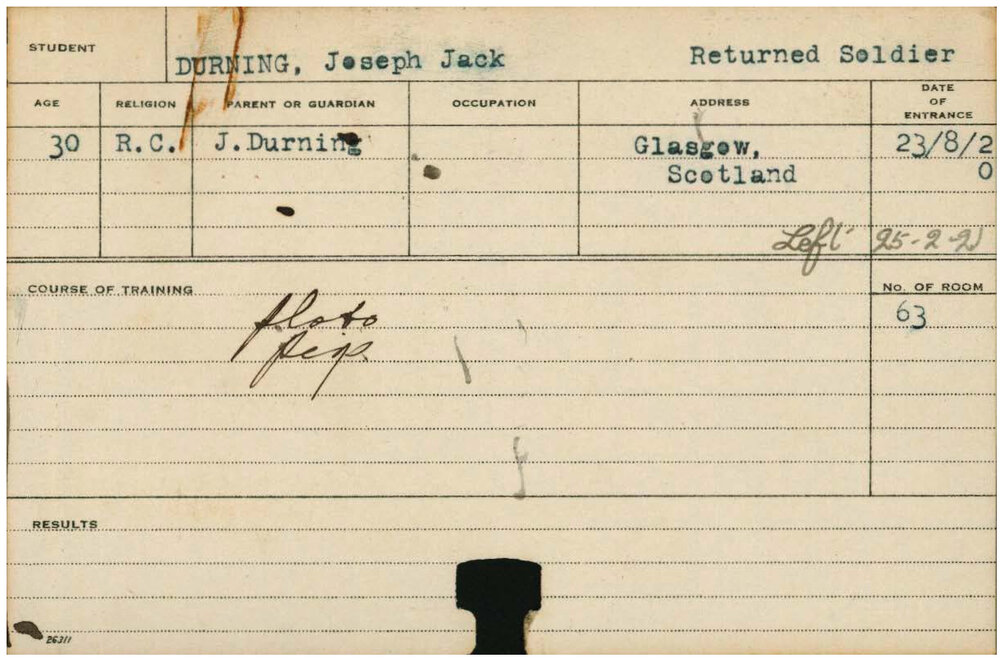 STUDENT
DURNING, Joseph Jack Returned Soldier
AGE RELIGION PARENT OR GUARDIAN OCCUPATION ADDRESS DATE OF ENTRANCE
30 R.C. J.Durning Glasgow, 23/8/2
Scotland 0
Left 25-2-21
COURSE OF TRAINING No. OF ROOM
63
RESULTS
26311